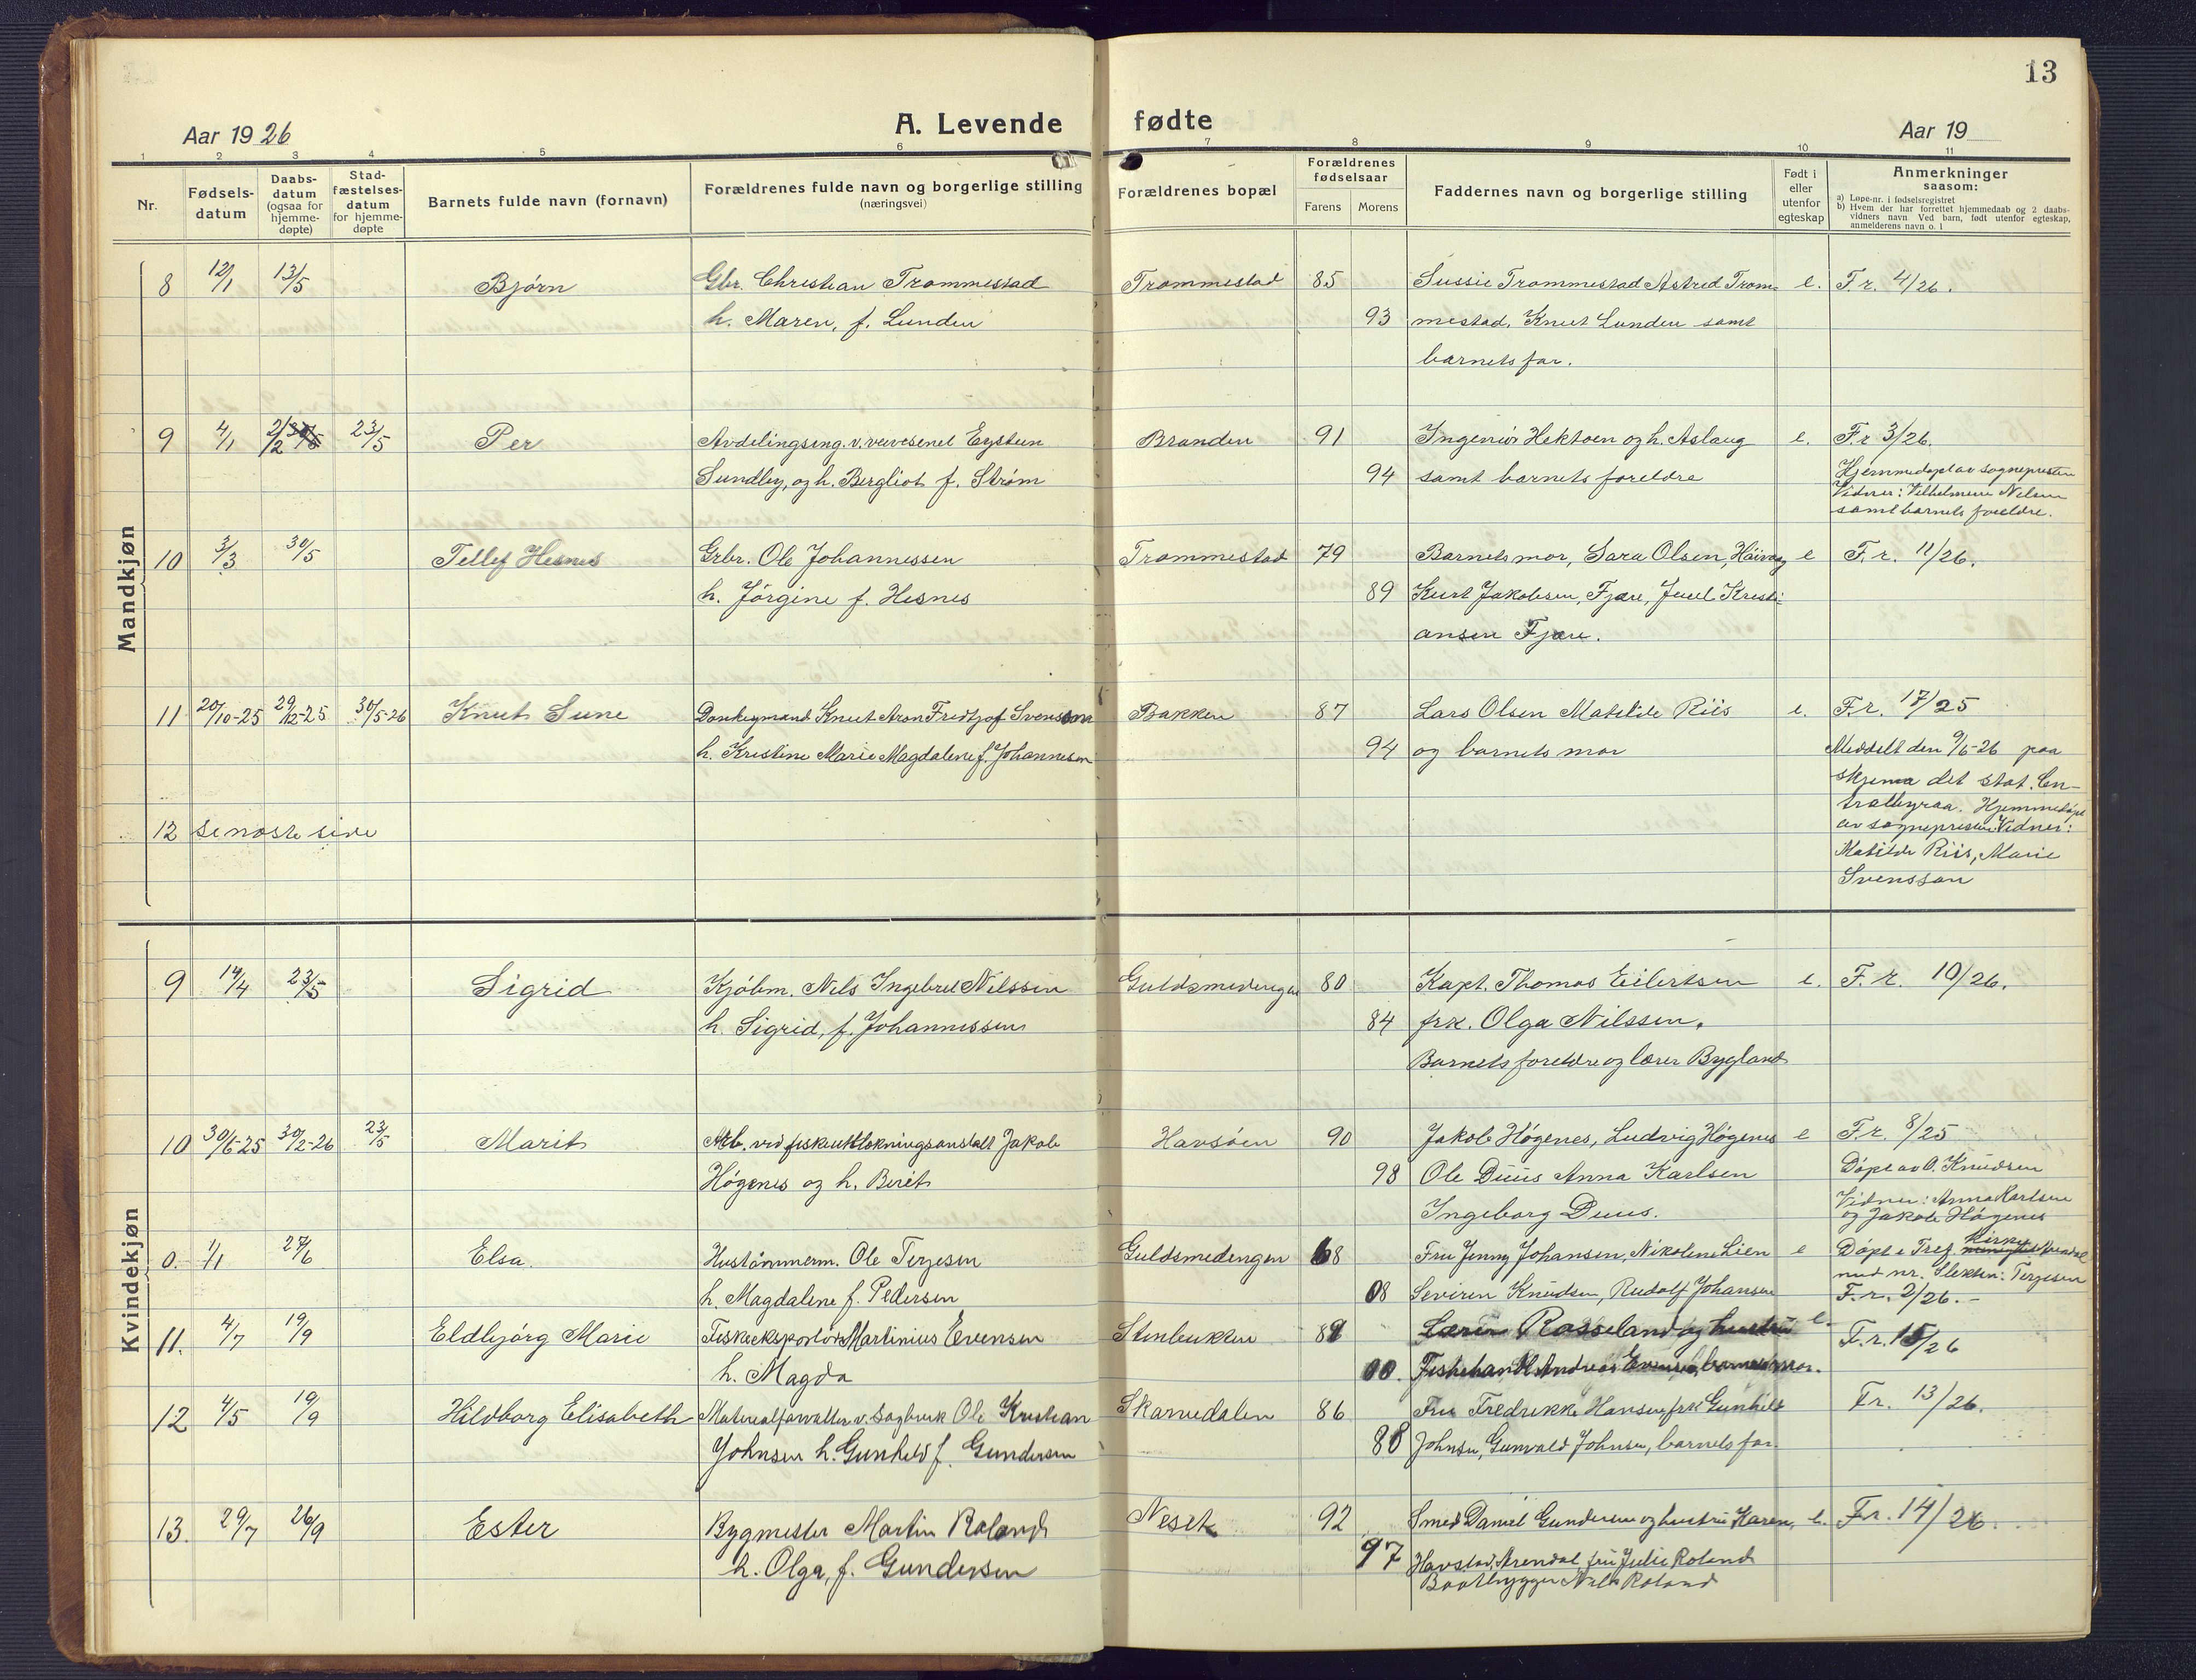 13
Aar 1926
A. Levende
fødte
Aar 19
1 2 3 4 5 6 7 8 9 10 11
Nr.
Fødsels-
datum
Daabs-
datum
(ogsaa for
hjemme-
døpte)
Stad-
fæstelses-
datum
for hjemme-
døpte
Barnets fulde navn (fornavn)
Forældrenes fulde navn og borgerlige stilling
(næringsvei)
Forældrenes bopæl
Forældrenes
fødselsaar
Farens Morens
Faddernes navn og borgerlige stilling
Født i
eller
utenfor
egteskap
Anmerkninger
saasom:
a) Løpe-nr. i fødselsregistret
b) Hvem der har forrettet hjemmedaab og 2 daabs-
vidners navn Ved barn, født utenfor egteskap,
anmelderens navn o. l
Mandkjøn
8 12/1 13/5 Bjørn Gbr. Christian Trommestad Trommestad 85 Sussie Trommestad Astrid Trom- e. F. r. 4/26.
h. Maren, f. Lunden 93 mestad, Knut Lunden samt
barnets far.
9 4/1 2/2 23/5 Per Avdelingsing. v. veivesenet Eystein Branden 91 Ingeniør Hektoen og h. Aslaug e. F. r 3/26.
Sundby, og h. Bergliot f. Strøm 94 samt barnets foreldre
Hjemmedøpt av sognepresten
Vidner: Vilhelmine Nelsen
samt barnets foreldre.
10 3/3 30/5 Tellef Hesnes Grbr. Ole Johannessen Trommestad 79 Barnets mor, Sara Olsen, Høivaag e F. r. 11/26.
h. Jörgine f. Hesnes 89 Kurt Jakobsen, Fjære, Juel Kristi-
ansen Fjære.
11 20/10-25 29/12-25 30/5-26 Knut Sune Donkeymand Knut Aron Fredtjof Svensson Bakken 87 Lars Olsen Matilde Riis e. F. r. 17/25
h. Kristine Marie Magdalene f. Johannesen 94 og barnets mor
Meddelt den 9/6-26 paa
skjema det stat. Cen-
tralbyraa. Hjemmedøpt
av sognepresten Vidner:
Matilde Riis, Marie
Svensson
12 se næste side
Kvindekjøn
9 14/4 23/5 Sigrid Kjøbm. Nils Ingebret Nilssen Guldsmedengen 80 Kapt. Thomas Eilertsen e. F. r. 10/26.
h. Sigrid, f. Johannessen 84 frk. Olga Nilssen.
Barnets foreldre og lærer Bygland
10 30/6-25 30/2-26 23/5 Marit Arb. ved fiskeutklækningsanstalt Jakob Havsøen 90 Jakob Høgenes, Ludvig Høgenes e F. r. 8/25
Høgenes og h. Berit 98 Ole Duus Anna Karlsen
Døpt av O. Knudsen
Ingeborg Duus.
Vidner: Anna Karlsen
og Jakob Høgenes
0. 1/1 27/6 Elsa Hustømmerm. Ole Terjesen Guldsmedengen 68 Fru Jenny Johansen, Nikoline Lien e Døpt i Tref. Kirke Arendal
h. Magdalene f. Pedersen 08 Severin Knudsen, Rudolf Johansen
med nr. Slektsn: Terjesen
F. r. 2/26.-
11. 4/7 19/9 Eldbjørg Marie Fiskeeksportør Martinius Evensen Stenbukten 89 Lærer Rosseland og hustru e. F. r. 15/26
h. Magda 00. Fiskehandl. Andreas Evensen, barnets mor.
12 4/5 19/9 Hildborg Elisabeth Materialforvalter v. Sagbruk Ole Kristian Skarvedalen 86 Fru Fredrikke Hansen frk. Gunhild F. r. 13/26.
Johnsen h. Gunhild f. Gundersen 88 Johnsen, Gunvald Johnsen, barnets far.
13. 29/7 26/9 Ester Bygmester Martin Roland Neset 92 Smed Daniel Gundersen og hustru Karen, e. F. r. 14/26.
h. Olga, f. Gundersen 97 Havstad, Arendal fru Julie Roland
Baatbygger Nils Roland